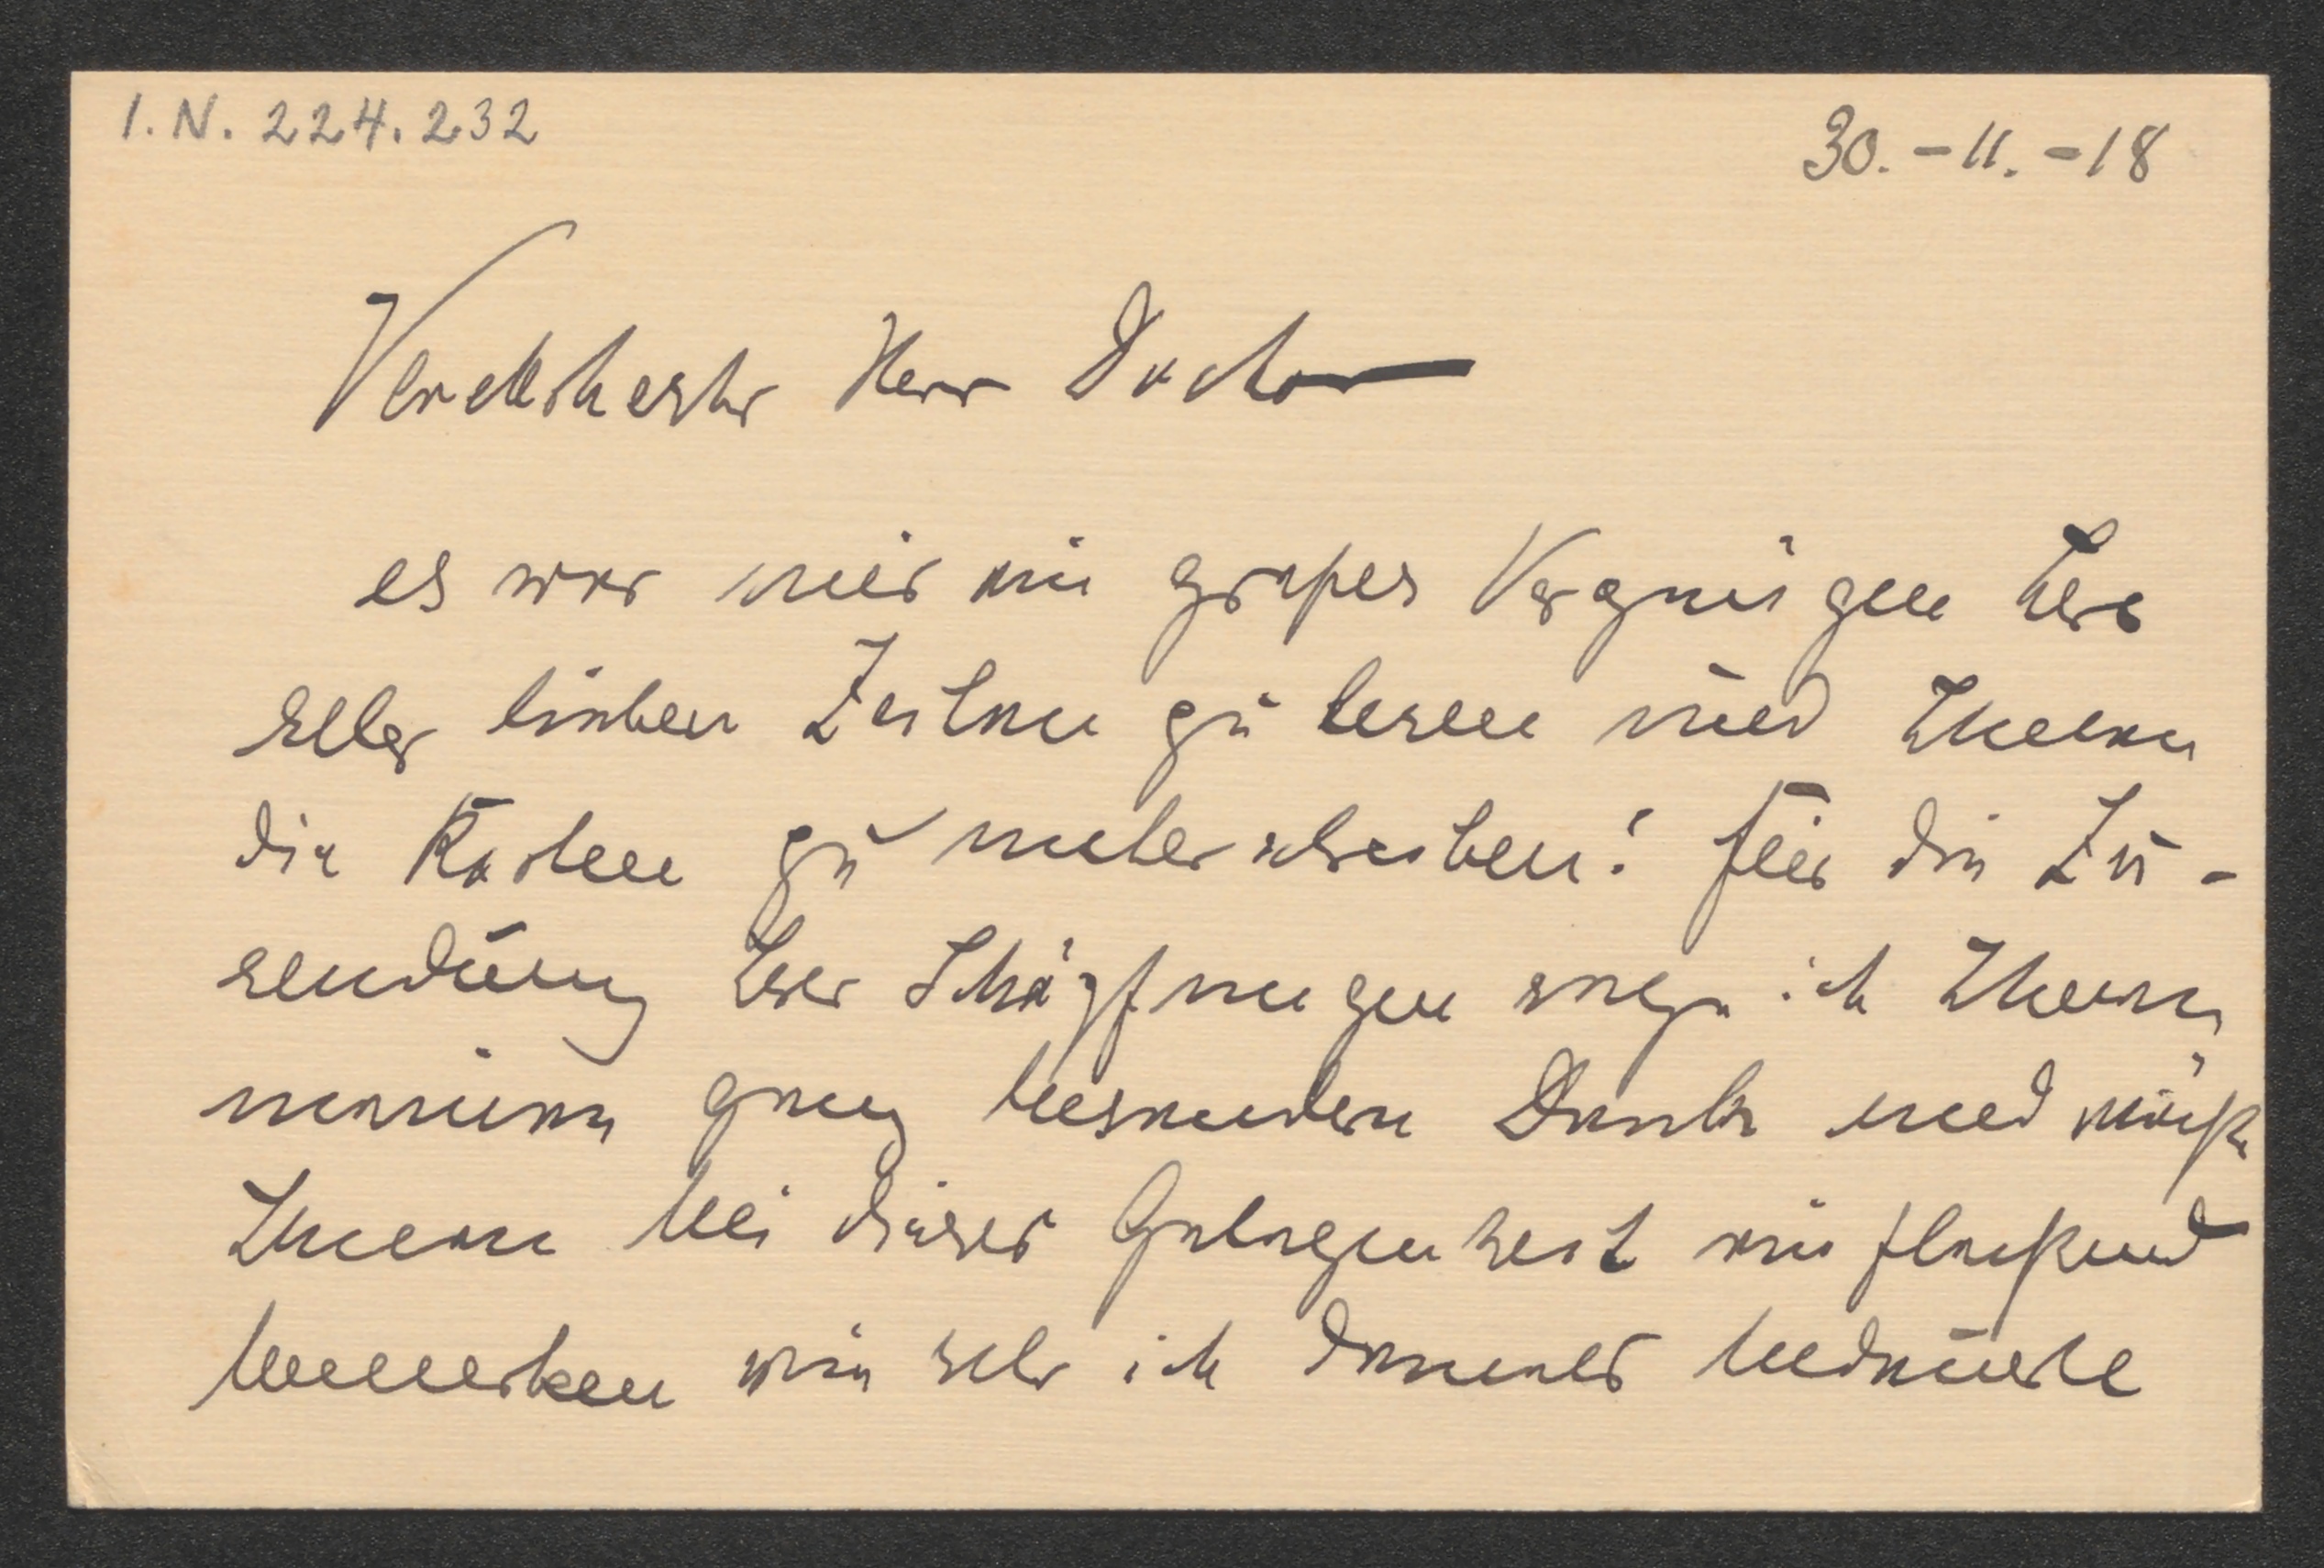 I.N. 224.232
30. - 11. - 18
Verehrtester Herr Doctor
es war mir ein großes Vergnügen Ihre
lieben Zeilen zu lesen und Ihnen
die Karten zu unterschreiben! Für die Zu-
sendung Ihrer Schöpfungen sage ich Ihnen
meinen ganz besonderen Dank und möchte
Ihnen bei dieser Gelegenheit
bemerken wie sehr ich bedauerte